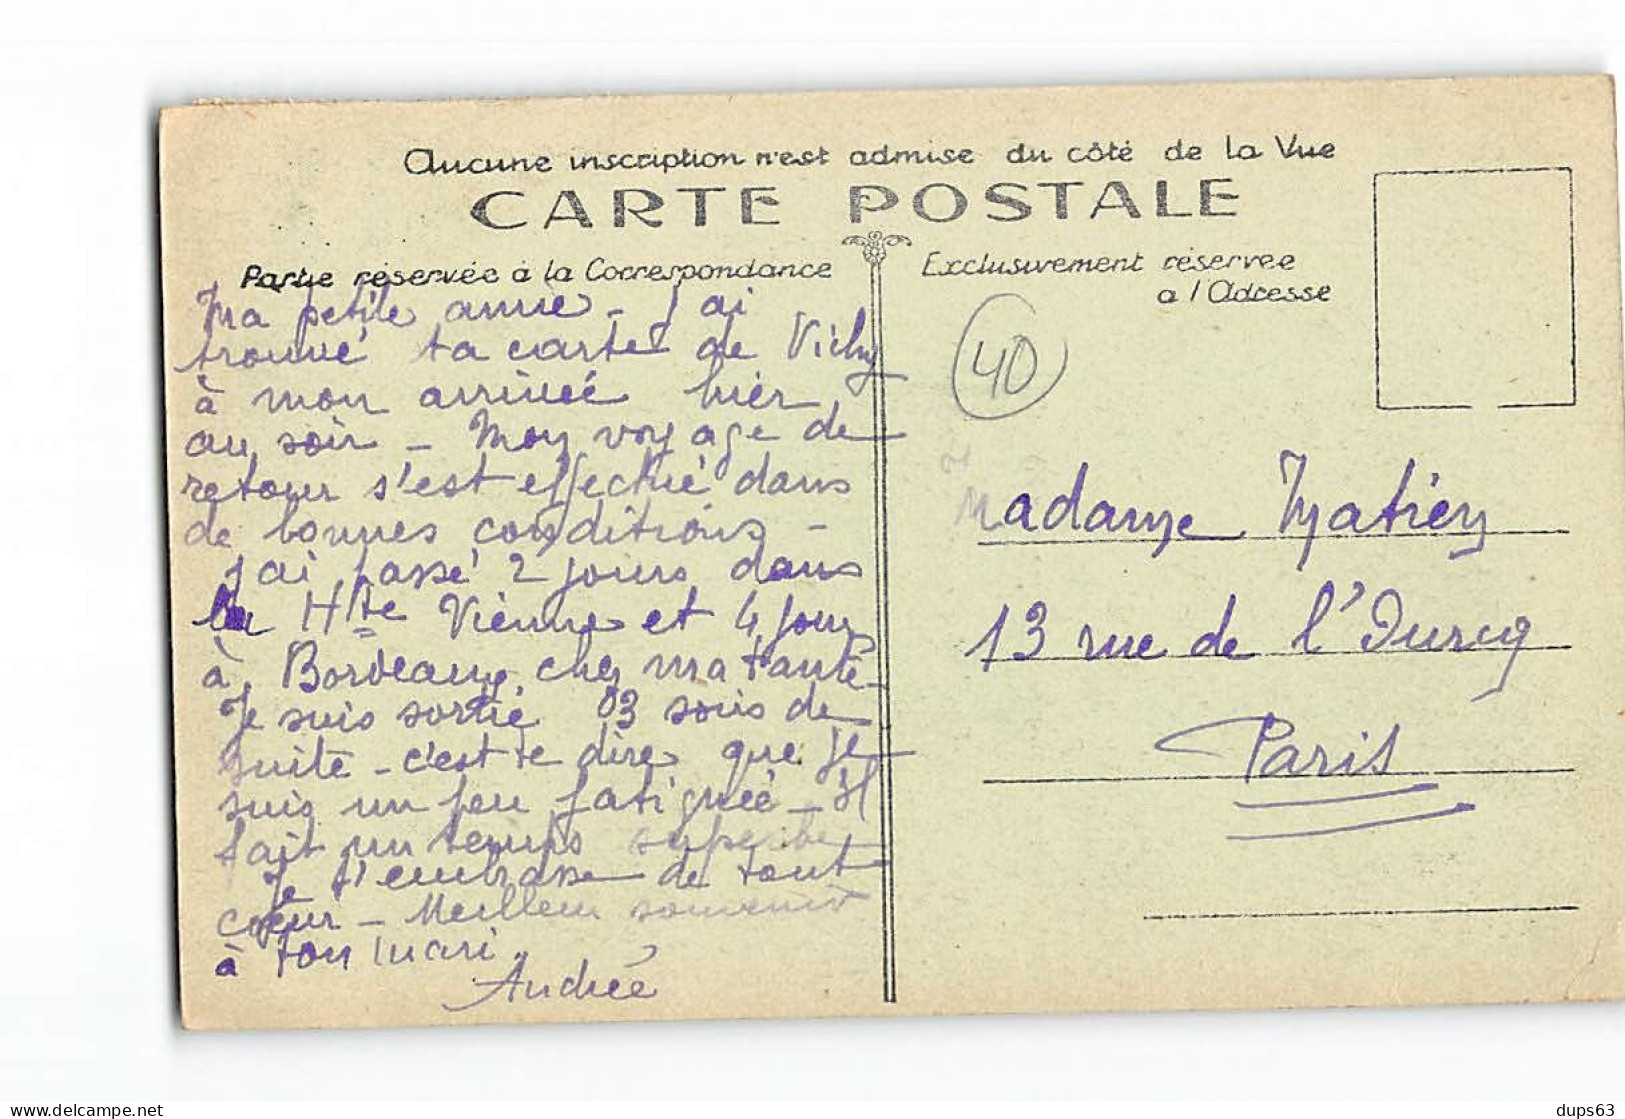 Aucune inscription n'est admise du côté de la Vue
CARTE POSTALE
Partie réservée à la Correspondance
Exclusivement réservée
a l'Adresse
Ma petite amie - J'ai
trouvé ta carte de Vichy
à mon arrivée hier
au soir - Mon voyage de
retour s'est effectué dans
de bonnes conditions -
J'ai passé 2 jours dans
la Hte Vienne et 4 jours
à Bordeaux chez ma tante -
Je suis sortie 03 soirs de
suite - c'est te dire que je
suis un peu fatiguée - Il
fait un temps superbe
Je t'embrasse de tout
cœur - Meilleur souvenir
à ton mari
Andrée
40
Madame Matien
13 rue de l'Ourcq
Paris
delcampe.net
dups63